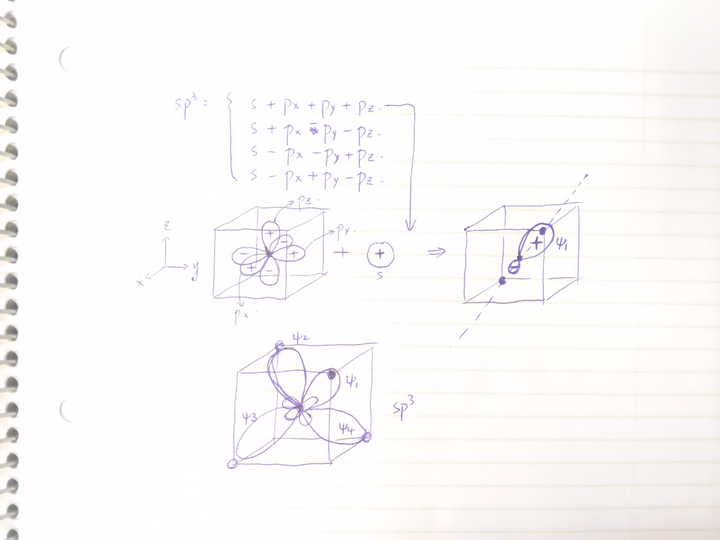 sp³ = { s + px + py + pz.
s + px - py - pz.
s - px - py + pz.
s - px + py - pz.
pz.
z
+
-
py.
y
x
-
+
+
-
px.
+
+
s
⇒
+
-
ψ₁
ψ₂
ψ₁
ψ₃
ψ₄
sp³